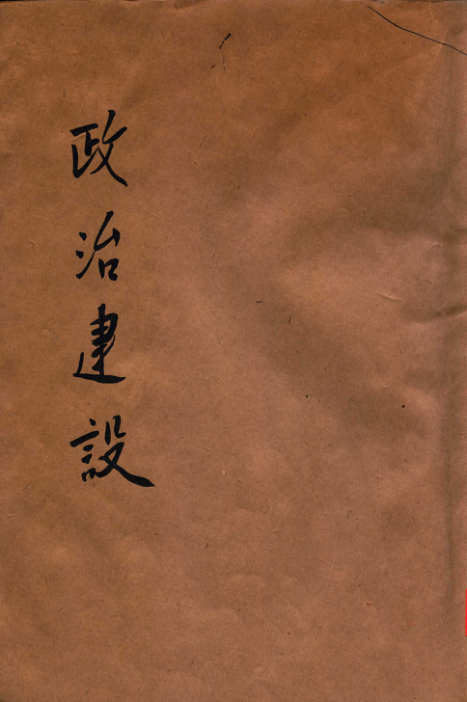 政治建設